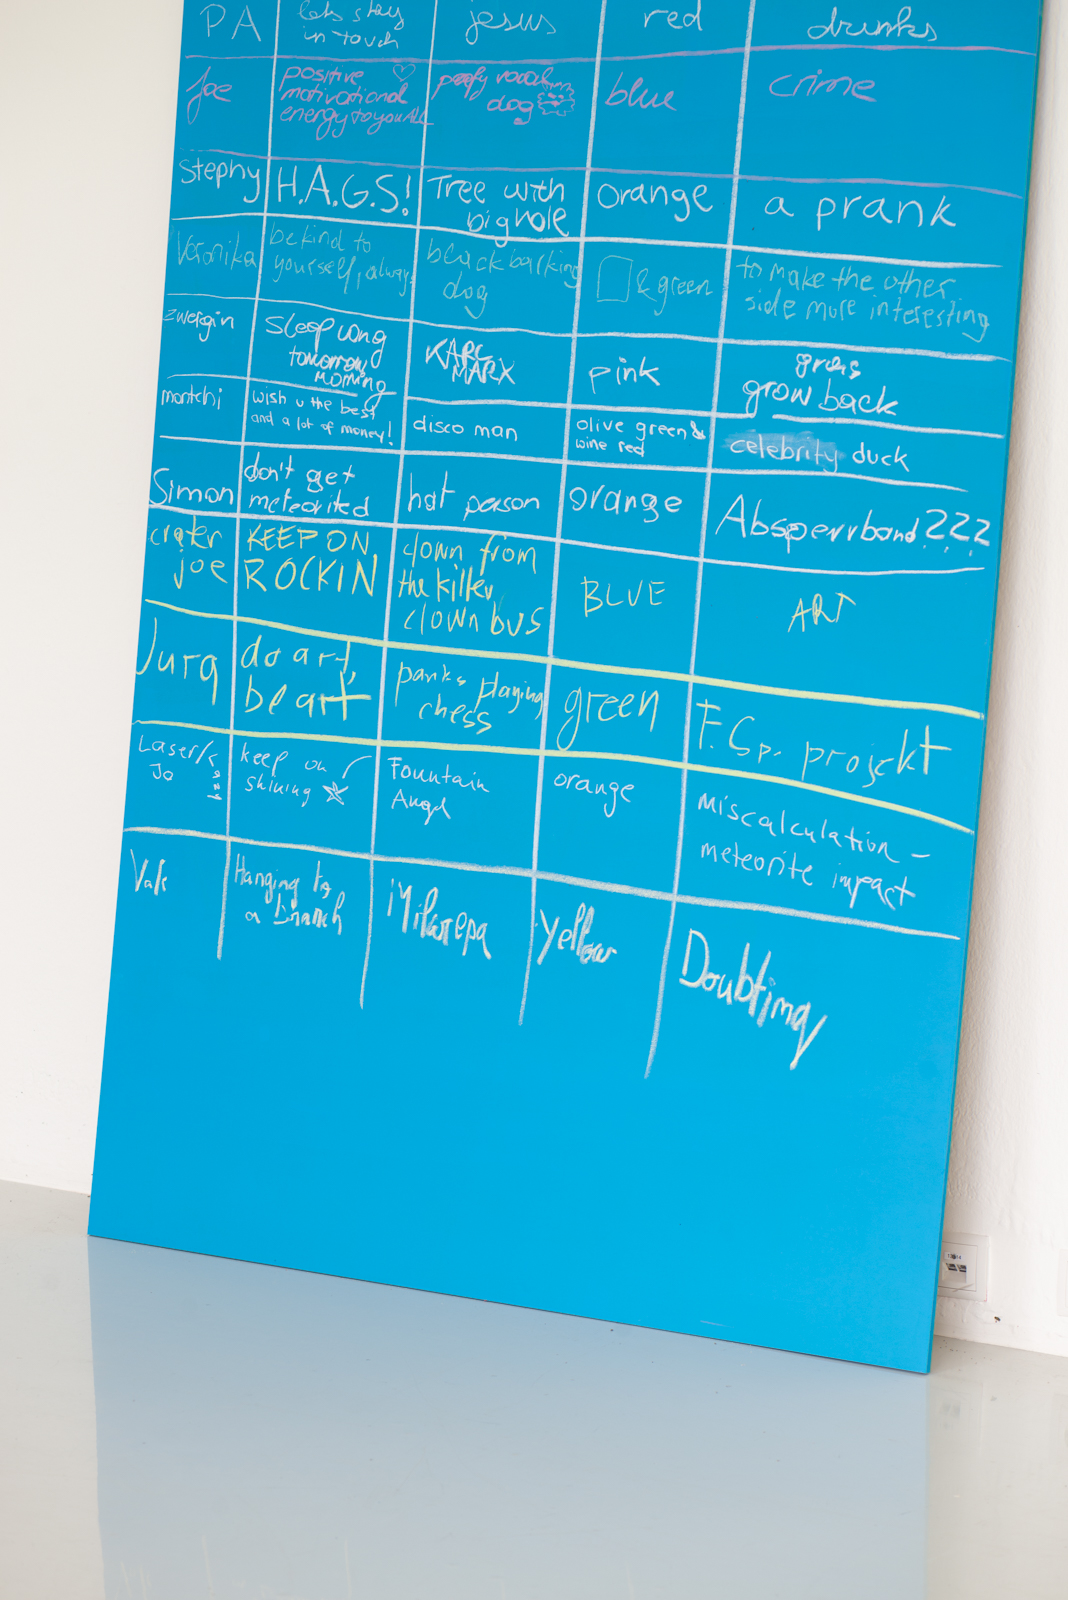 PA
lets stay
in touch
jesus
red
drunks
joe
positive
motivational
energy to you ALL
dog
blue
crime
stephy
H.A.G.S!
Tree with
big hole
orange
a prank
Veronika
be kind to
yourself, always
black barking
dog
& green
to make the other
side more interesting
zwergin
sleep long
tomorrow
morning
KARL
MARX
pink
grass
grow back
montchi
wish u the best
and a lot of money!
disco man
olive green &
wine red
celebrity duck
Simon
don't get
meteorited
hat person
orange
Absperrband???
crater
joe
KEEP ON
ROCKIN
clown from
the killer
clown bus
BLUE
ART
Jurg
do art,
be art
punks playing
chess
green
F. Sp. projekt
Laser/
Jo
keep on
shining
Fountain
Angel
orange
miscalculation –
meteorite impact
Vale
Hanging to
a branch
Milarepa
Yellow
Doubting